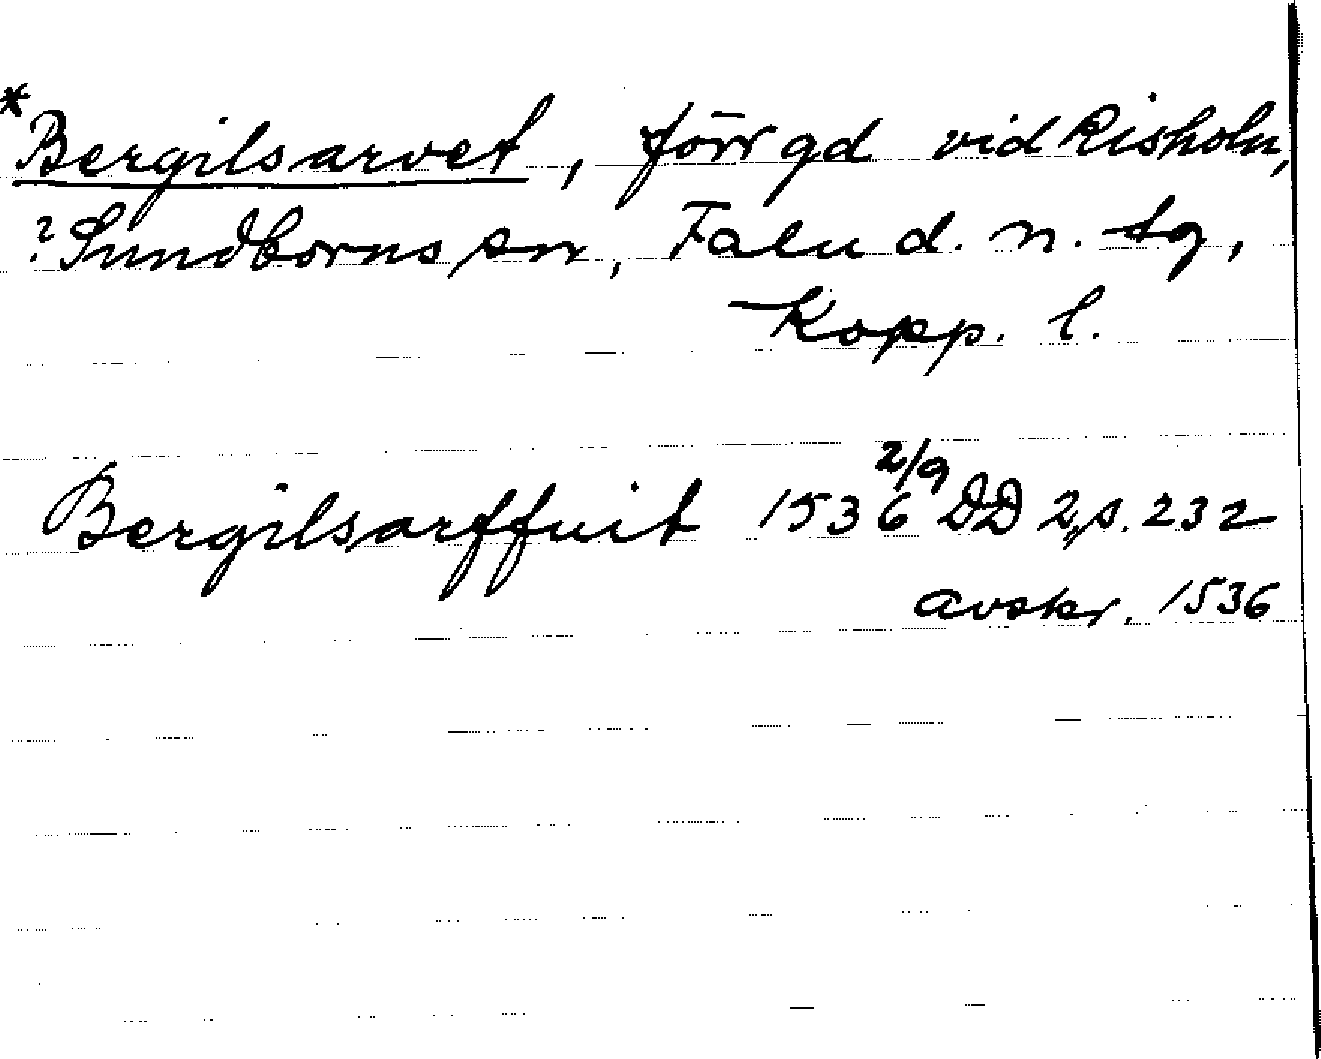 *Bergilsarvet, förr gd vid Risholn,
?Sundborns sn, Falu d. n. tg,
Kopp. l.
Bergilsarffuit 1536 2/9 DD 2, s. 232
avskr. 1536